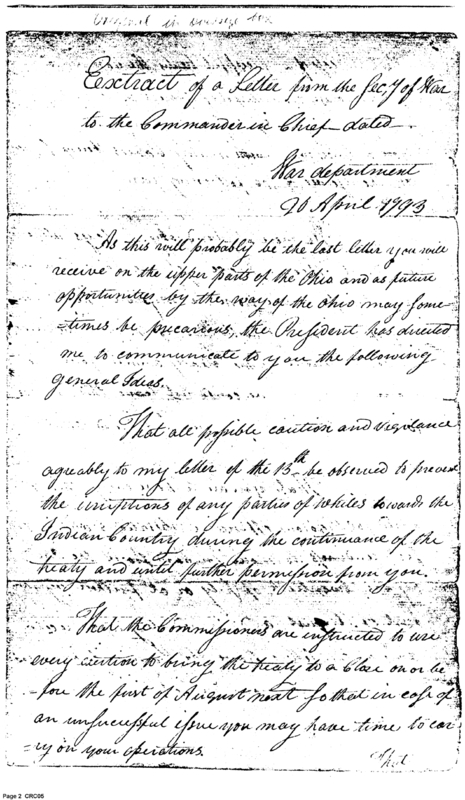 Extract of a Letter from the Sec,y of War
to the Commander in Chief dated
War department
20 April 1793
As this will probably be the last letter you will
receive on the upper parts of the Ohio and as future
opportunities by the way of the Ohio may some=
=times be precarious, the President has directed
me to communicate to you the following
general Ideas.
That all possible caution and vigilance
agreably to my letter of the 13th be observed to prevent
the irruptions of any parties of whites towards the
Indian Country during the continuance of the
treaty and until further permission from you.
That the Commissioners are instructed to use
every caution to bring the treaty to a close on or be
=fore the first of August next so that in case of
an unsuccessful issue you may have time to car
=ry on your operations.
That
Page 2 CRC05